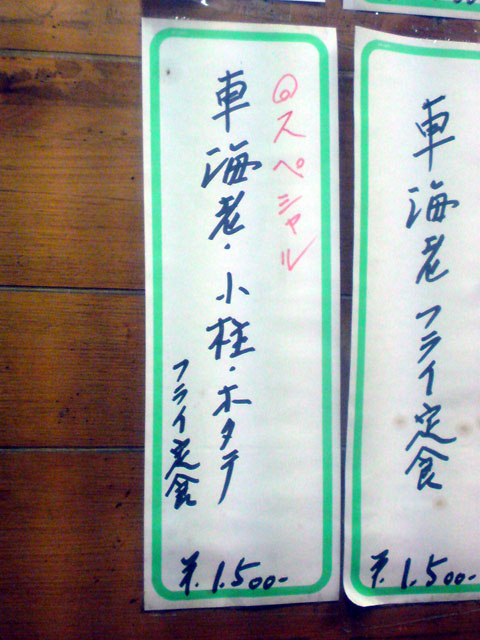 車海老フライ定食
¥.1.500-
◎スペシャル
車海老・小柱・ホタテ
フライ定食
¥.1.500-